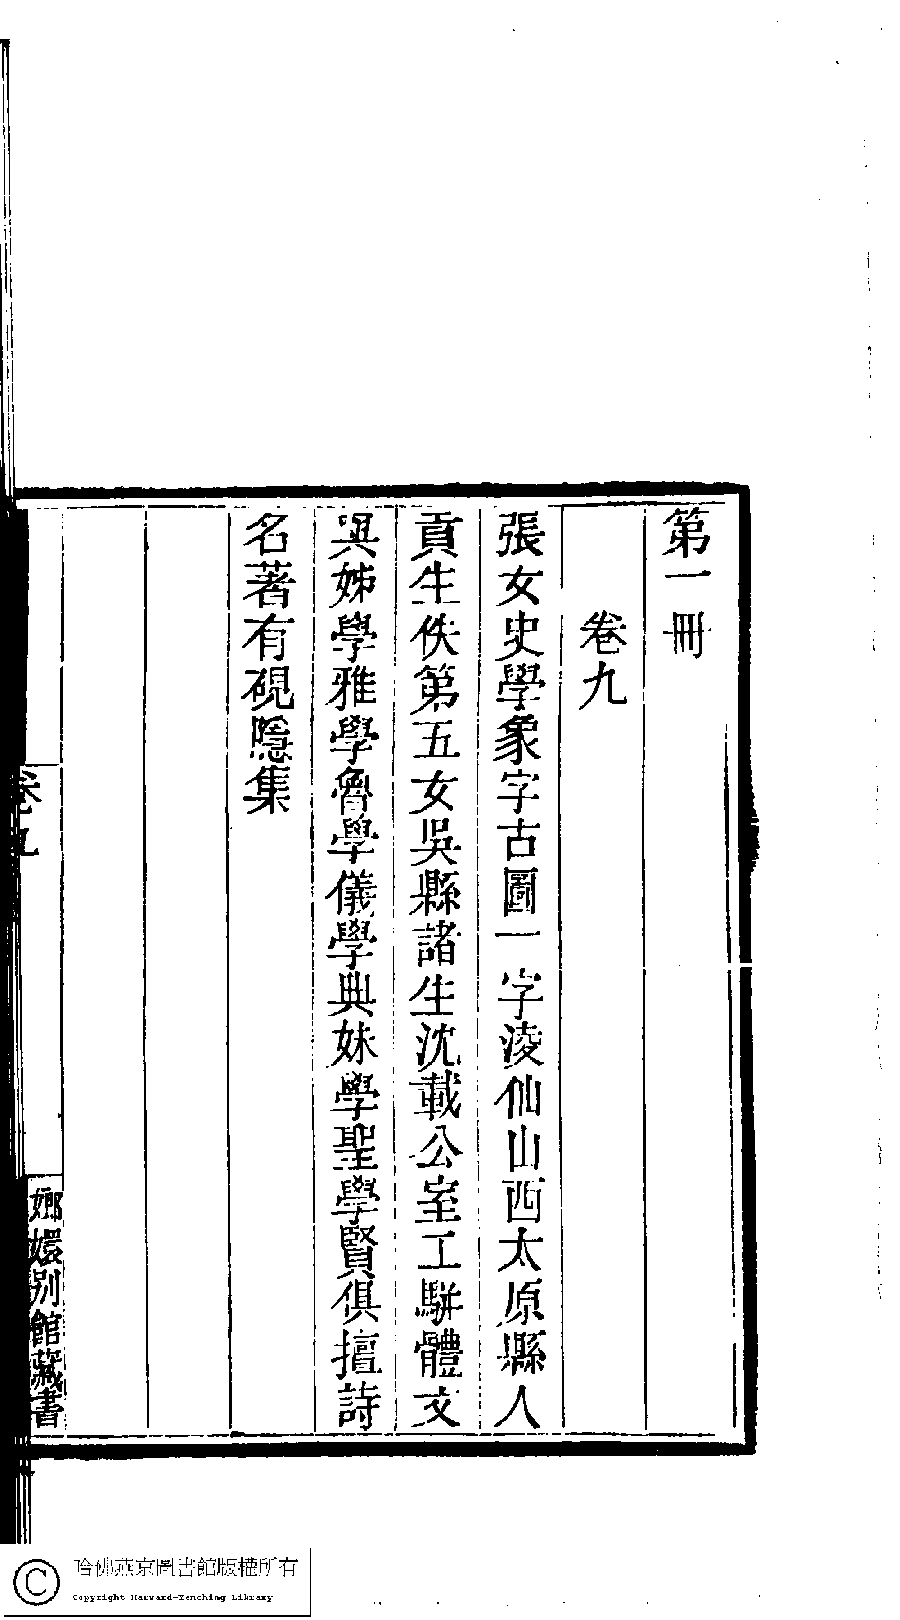 第一冊
卷九
張女史學象字古圖一字淩仙山西太原縣人
貢生佚第五女吳縣諸生沈載公室工駢體文
與姊學雅學魯學儀學典妹學聖學賢俱擅詩
名著有硯隱集
卷九
嫏嬛別館藏書
哈佛燕京圖書館版權所有
Copyright Harvard-Yenching Library